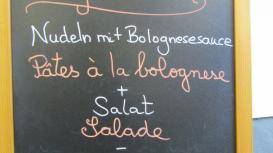 Nudeln mit Bolognesesauce
Pâtes à la bolognese
+
Salat
Salade